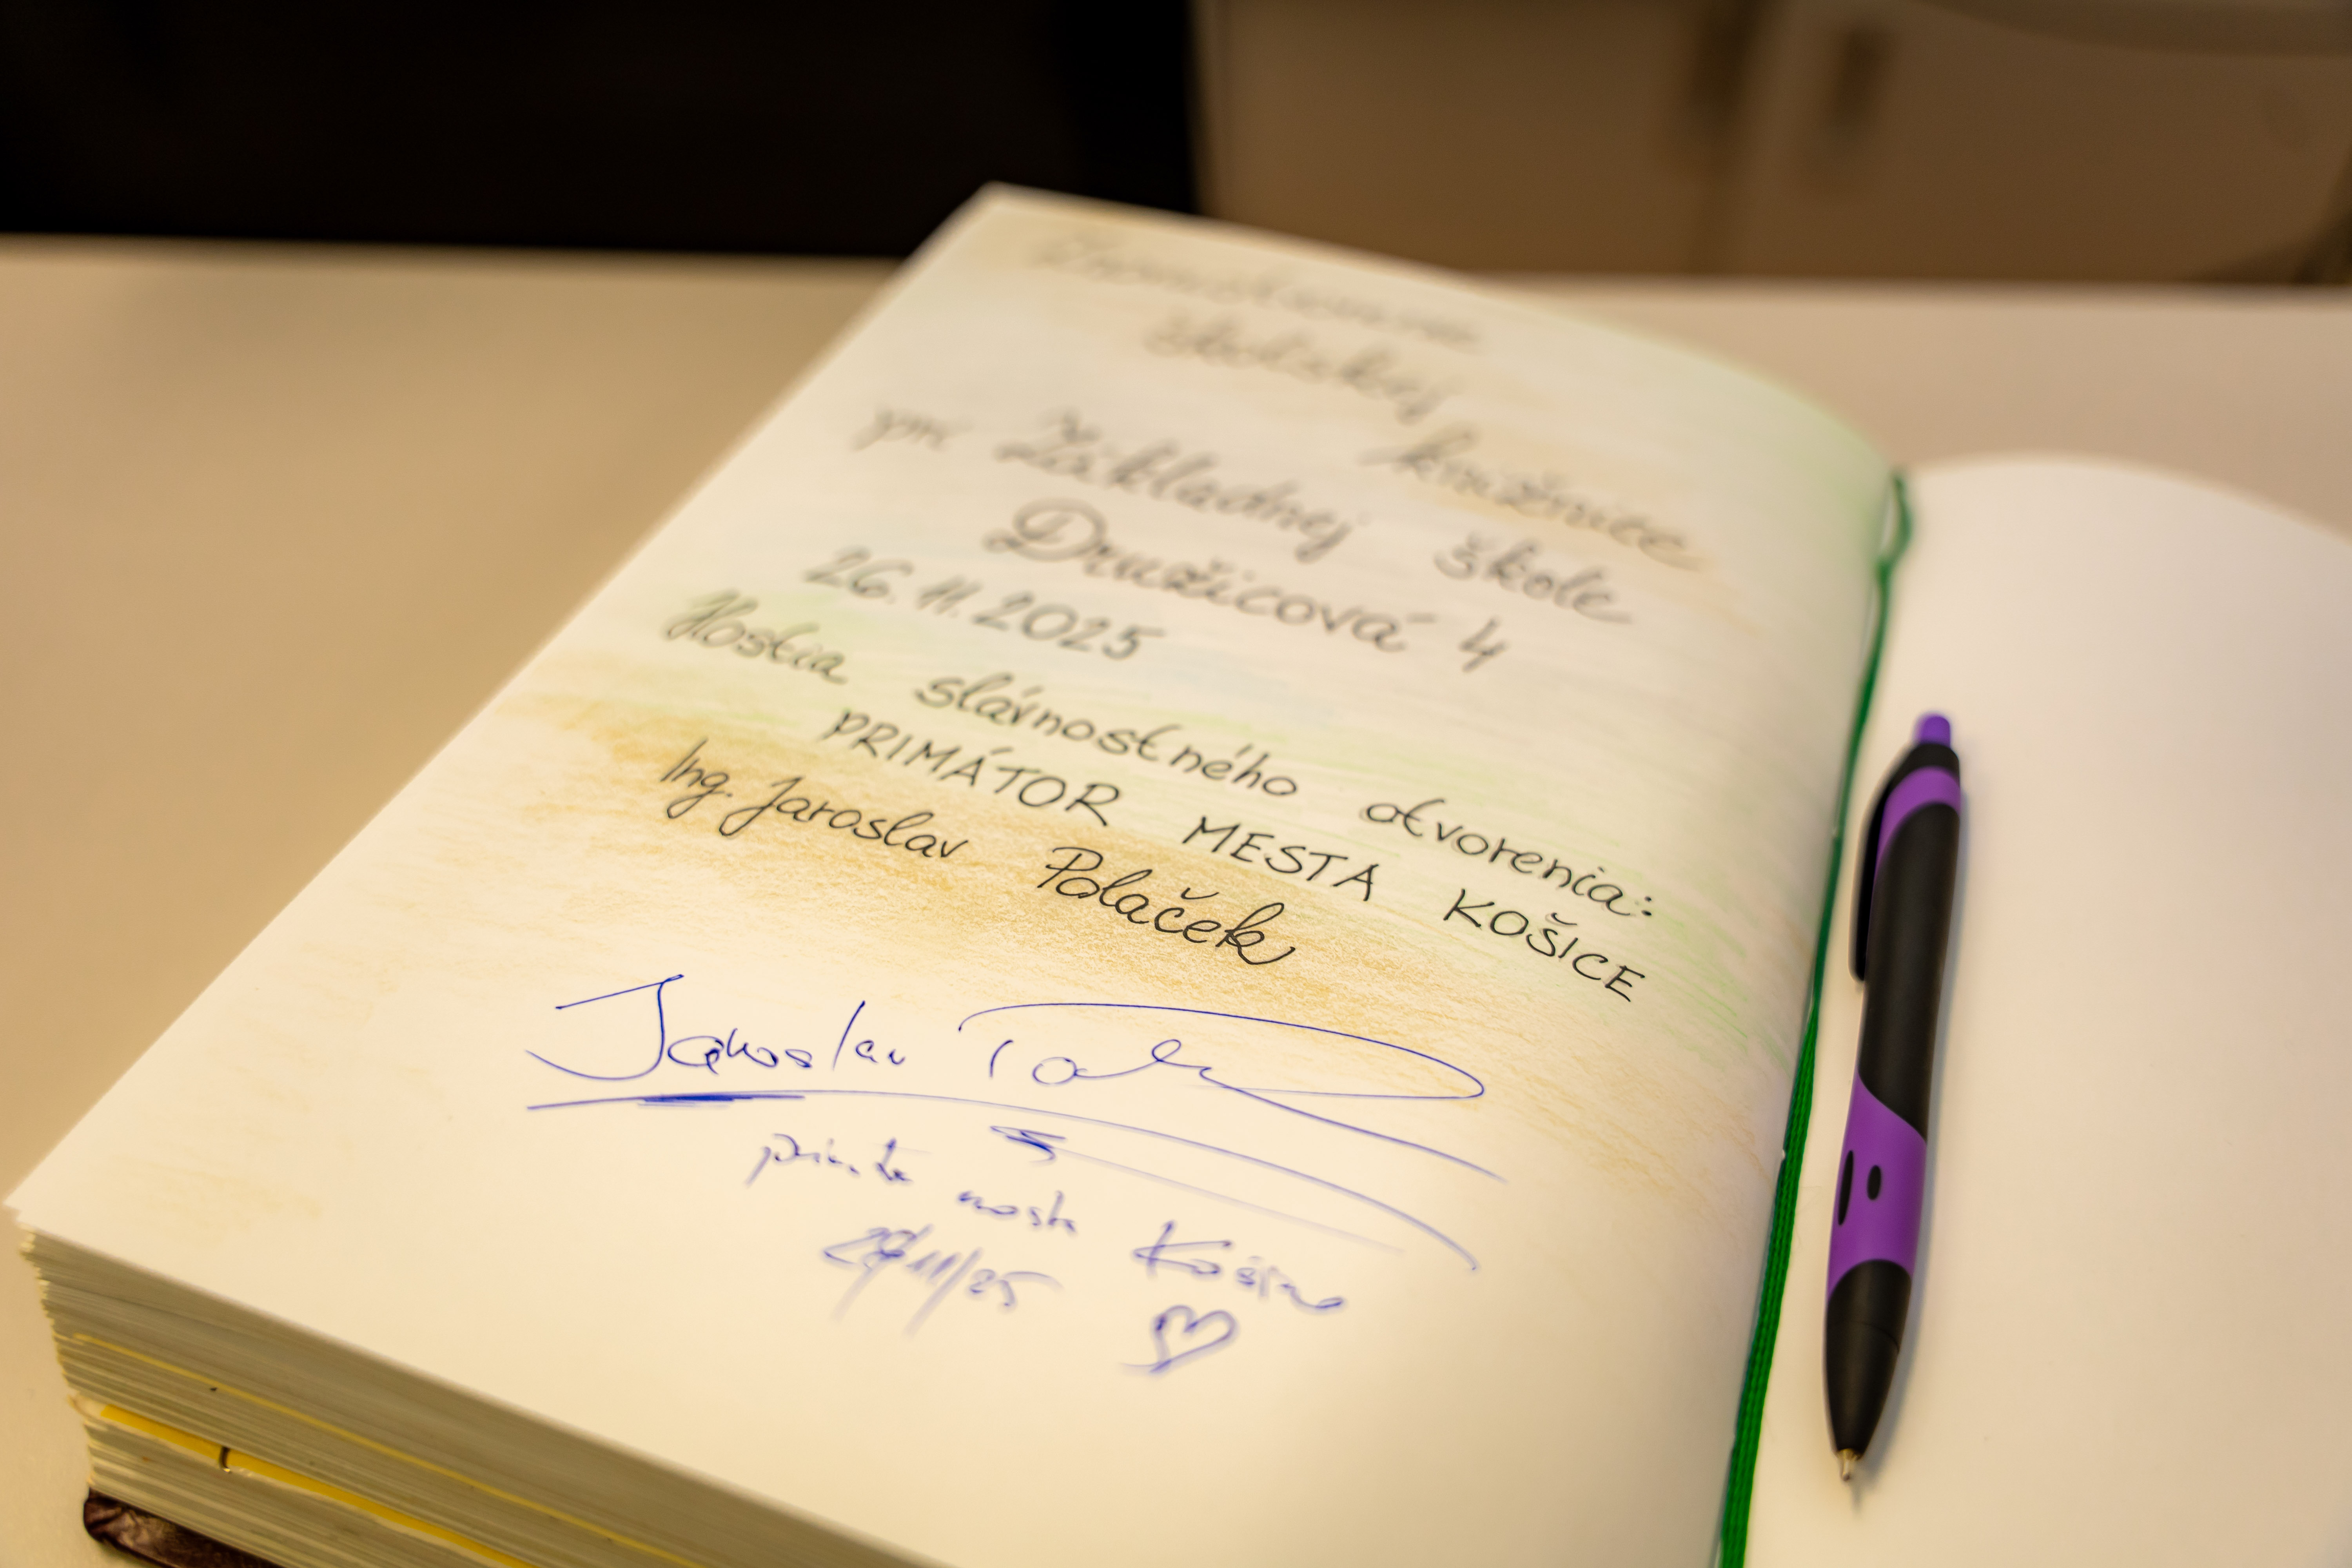 školskej knižnice
pri Základnej škole
Družicová 4
26.11.2025
Hostia slávnostného otvorenia:
PRIMÁTOR MESTA KOŠICE
Ing. Jaroslav Polaček
Jaroslav
mesta Košice